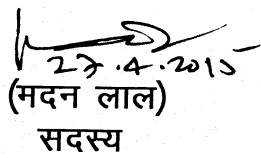 27.4.2015
(मदन लाल)
सदस्य